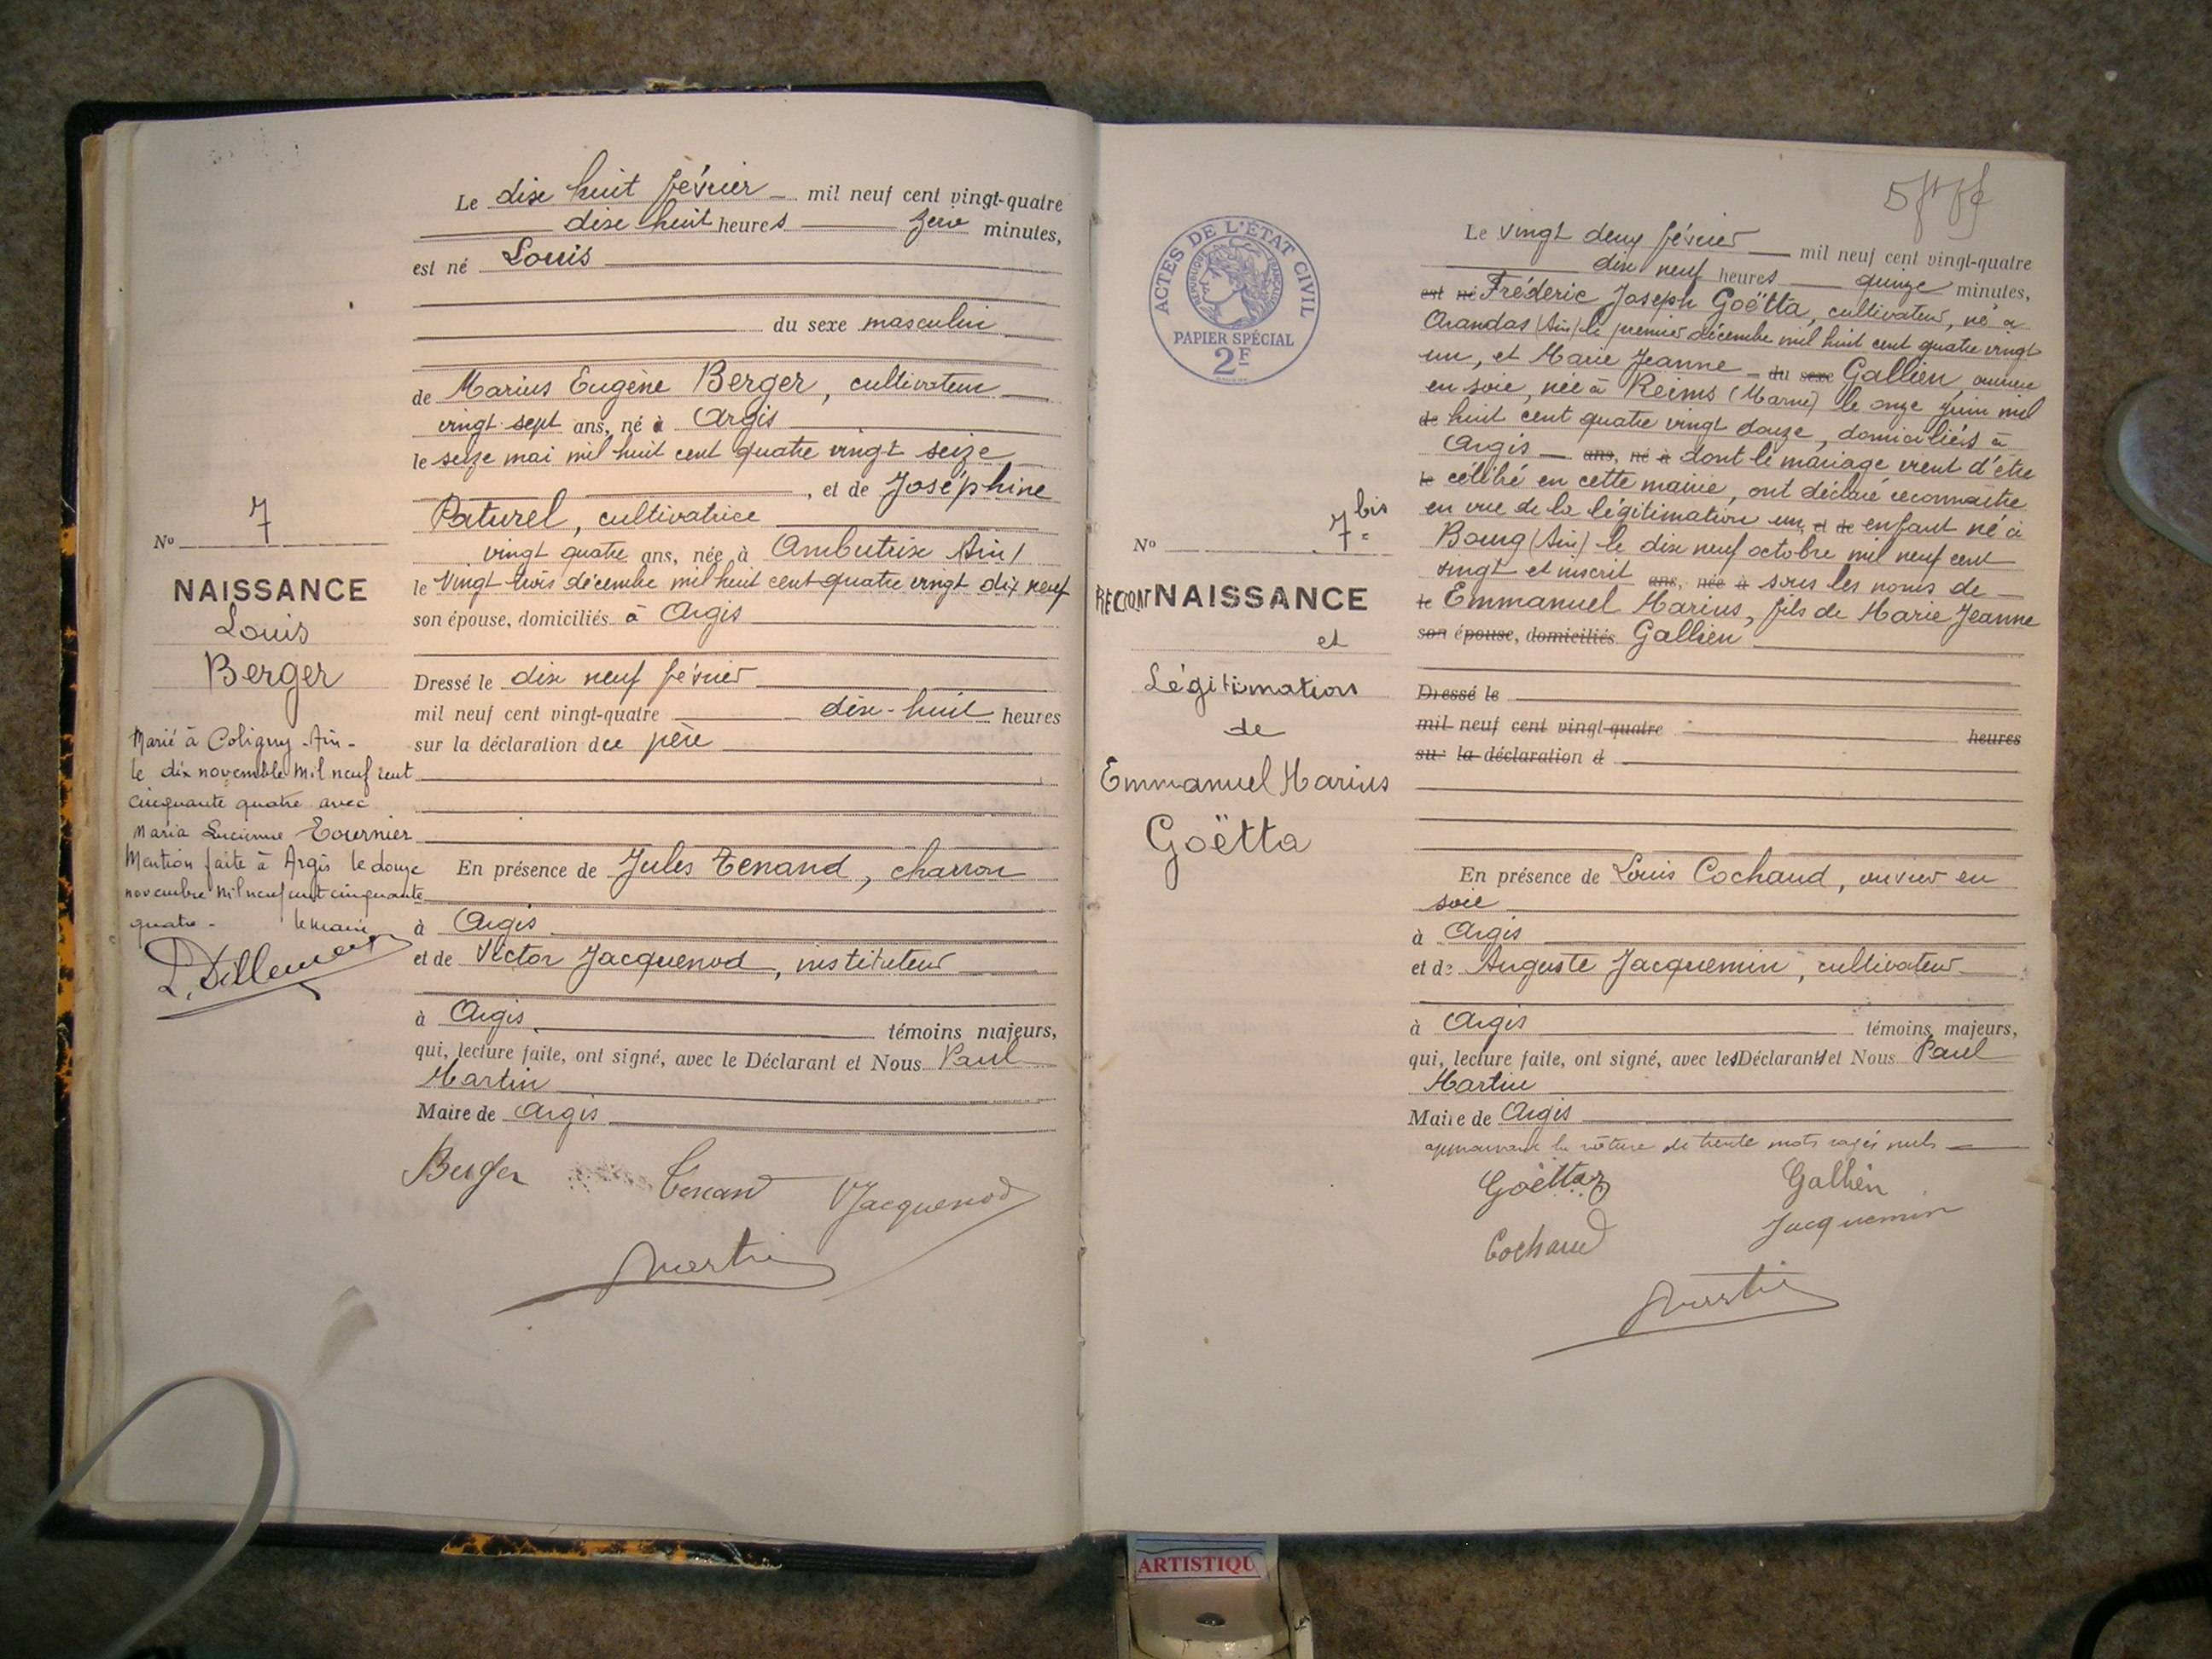 Le dix huit février mil neuf cent vingt-quatre
dix huit heures zéro minutes,
est né Louis
du sexe masculin
de Marius Eugène Berger, cultivateur
vingt sept ans, né à Argis
le seize mai mil huit cent quatre vingt seize
, et de Joséphine
Paturel, cultivatrice
vingt quatre ans, née à Ambutrix (Ain)
le vingt trois décembre mil huit cent quatre vingt dix neuf
son épouse, domiciliés à Argis
Dressé le dix neuf février
mil neuf cent vingt-quatre dix-huit heures
sur la déclaration du père
En présence de Jules Tenand, charron
à Argis
et de Victor Jacquenod, instituteur
à Argis témoins majeurs,
qui, lecture faite, ont signé, avec le Déclarant et Nous Paul
Martin
Maire de Argis
Berger Tenand VJacquenod
Martin
No 7
NAISSANCE
Louis
Berger
Marié à Coligny -Ain-
le dix novembre mil neuf cent
cinquante quatre avec
Maria Lucienne Tournier
Mention faite à Argis le douze
novembre mil neuf cent cinquante
quatre - le maire
ACTES DE L'ÉTAT CIVIL
RÉPUBLIQUE FRANÇAISE
PAPIER SPÉCIAL
2F
No 7 bis
RECONNAISSANCE
et
Légitimation
de
Emmanuel Marius
Goëtta
Le vingt deux février mil neuf cent vingt-quatre
dix neuf heures quinze minutes,
est né Fréderic Joseph Goëtta, cultivateur, né à
Arandas (Ain) le premier décembre mil huit cent quatre vingt
un, et Marie Jeanne du sexe Gallien, ouvrière
en soie, née à Reims (Marne) le onze juin mil
de huit cent quatre vingt douze, domiciliés à
Argis ans, né à dont le mariage vient d'être
le célébré en cette mairie, ont déclaré reconnaître
en vue de la légitimation un, et de enfant né à
Bourg (Ain) le dix neuf octobre mil neuf cent
vingt et inscrit ans, née à sous les noms de
le Emmanuel Marius, fils de Marie Jeanne
son épouse, domiciliés Gallien
Dressé le
mil neuf cent vingt-quatre heures
sur la déclaration d
En présence de Louis Cochaud, ouvrier en
soie
à Argis
et de Auguste Jacquemin, cultivateur
à Argis témoins majeurs,
qui, lecture faite, ont signé, avec les Déclarants et Nous Paul
Martin
Maire de Argis
approuvant la rature de trente mots rayés nuls
Goëtta Gallien
Cochaud Jacquemin
Martin
ARTISTIQU